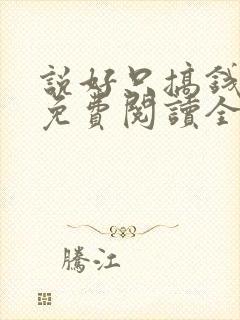 説好只搞錢
免費閱讀全
騰江